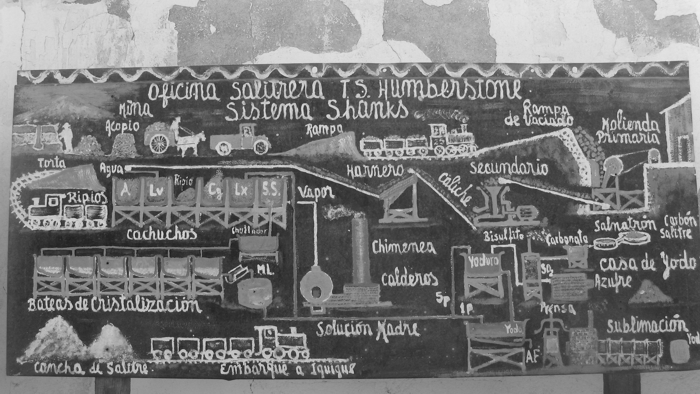 Oficina Salitrera T.S. Humberstone
Sistema Shanks
Mina
Acopio
Rampa
Rampa
de vaciado
Molienda
Primaria
Torta
Ripios
Agua
A Lv Ripio Cg Lx S.S.
Cachuchos
Chullador
Vapor
Harnero
Caliche
Secundario
Chimenea
Calderos
Bisulfito
Carbonato
Salnatrón
Carbón
Salitre
Casa de Yodo
Yoduro
Sg
Azufre
ML
Bateas de Cristalización
Sp
1P
Prensa
Solución Madre
Yod
AF
Sublimación
Yod
Cancha de Salitre
Embarque a Iquique